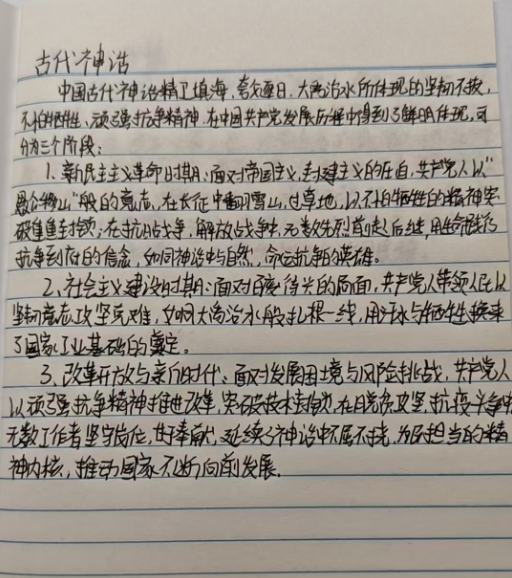 古代神话
中国古代神话精卫填海、夸父逐日、大禹治水所体现的坚韧不拔,
不怕牺牲、顽强抗争精神,在中国共产党发展历程中得到了鲜明体现,可
分为三个阶段:
1. 新民主主义革命时期:面对帝国主义、封建主义的压迫,共产党人以“
愚公移山”般的意志,在长征中翻雪山,过草地,以不怕牺牲的精神突
破重重封锁;在抗日战争、解放战争中,无数先烈前赴后继,用生命践行
抗争到底的信念,如同神话中与自然、命运抗争的英雄。
2、社会主义建设时期:面对百废待兴的局面,共产党人带领人民以
坚韧意志攻坚克难,如大禹治水般扎根一线,用汗水与牺牲换来
了国家工业基础的奠定。
3、改革开放与新时代:面对发展困境与风险挑战,共产党人
以顽强抗争精神推进改革,突破技术封锁,在脱贫攻坚、抗疫斗争中
无数工作者坚守岗位,奉献,延续了神话中不屈不挠,为民担当的精
神内核,推动国家不断向前发展.